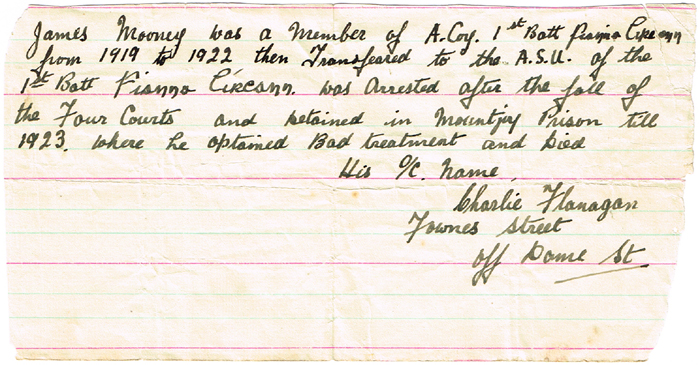 James Mooney was a Member of A. Coy. 1st Batt Fianna Eireann
from 1919 to 1922 then Transfeared to the A.S.U. of the
1st Batt Fianna Eireann. was Arrested after the fall of
the Four Courts and Detained in Mountjoy Prison till
1923. where he optained Bad treatment and Died
His O/C. Name,
Charlie Flanagan
Fownes Street
off Dame St